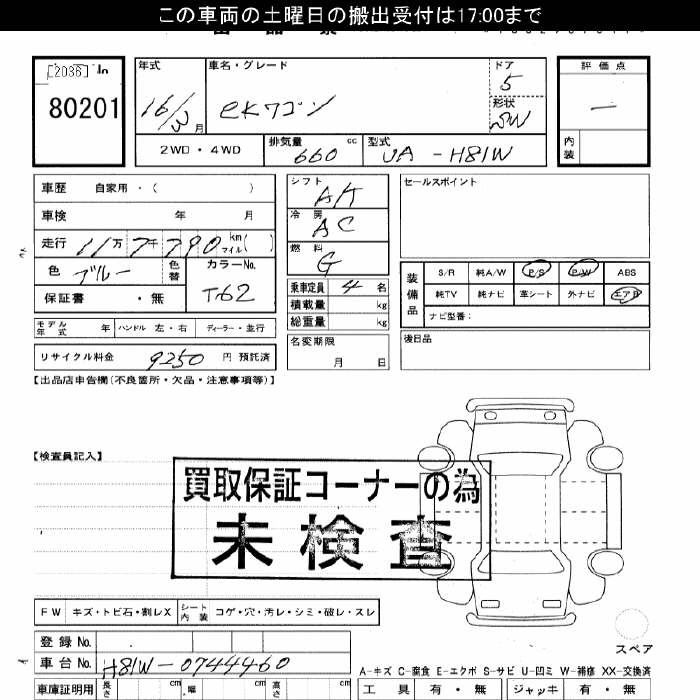 この車両の土曜日の搬出受付は17:00まで
[2036]
80201
年式 車名・グレード ドア 評価点
16/3月 eKワゴン 5 —
形状 SW
2WD・4WD 排気量 660 cc 型式 UA-H81W 内装
車歴 自家用・( )
車検 年 月
走行 11万7千790 km マイル( )
色 ブルー 色替 カラーNo. T62
保証書 ・無
シフト AT
冷房 AC
燃料 G
乗車定員 4 名
積載量 kg
総重量 kg
セールスポイント
装備品 S/R 純A/W P/S P/W ABS
純TV 純ナビ 革シート 外ナビ エアB
ナビ型番:
モデル年式 年 ハンドル 左・右 ディーラー・並行
名変期限 月 日
後日品
リサイクル料金 9250 円 預託済
【出品店申告欄(不良箇所・欠品・注意事項等)】
【検査員記入】
買取保証コーナーの為
未検査
FW キズ・トビ石・割レX シート内装 コゲ・穴・汚レ・シミ・破レ・スレ
登録No.
スペア
車台No. H81W-0744460
A-キズ C-腐食 E-エクボ S-サビ U-凹ミ W-補修 XX-交換済
車庫証明用 長さ cm 幅 cm 高さ cm 工具 有・無 ジャッキ 有・無